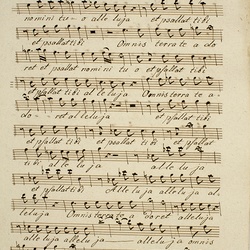 nomini tu-o alleluja et psallat tibi
et psallat tibi Omnis terra te ado
ret et psallat nomini tuo et psallat tibi
et psallat tibi alleluja Omnis terra te a-
do-ret alleluja et psallat tibi
et psallat tibi et psallat tibi et psallat
tibi alleluja alleluja
et psallat tibi Alleluja alleluja al,
leluja Omnis terra te adoret alleluja
alleluja alleluja omnis